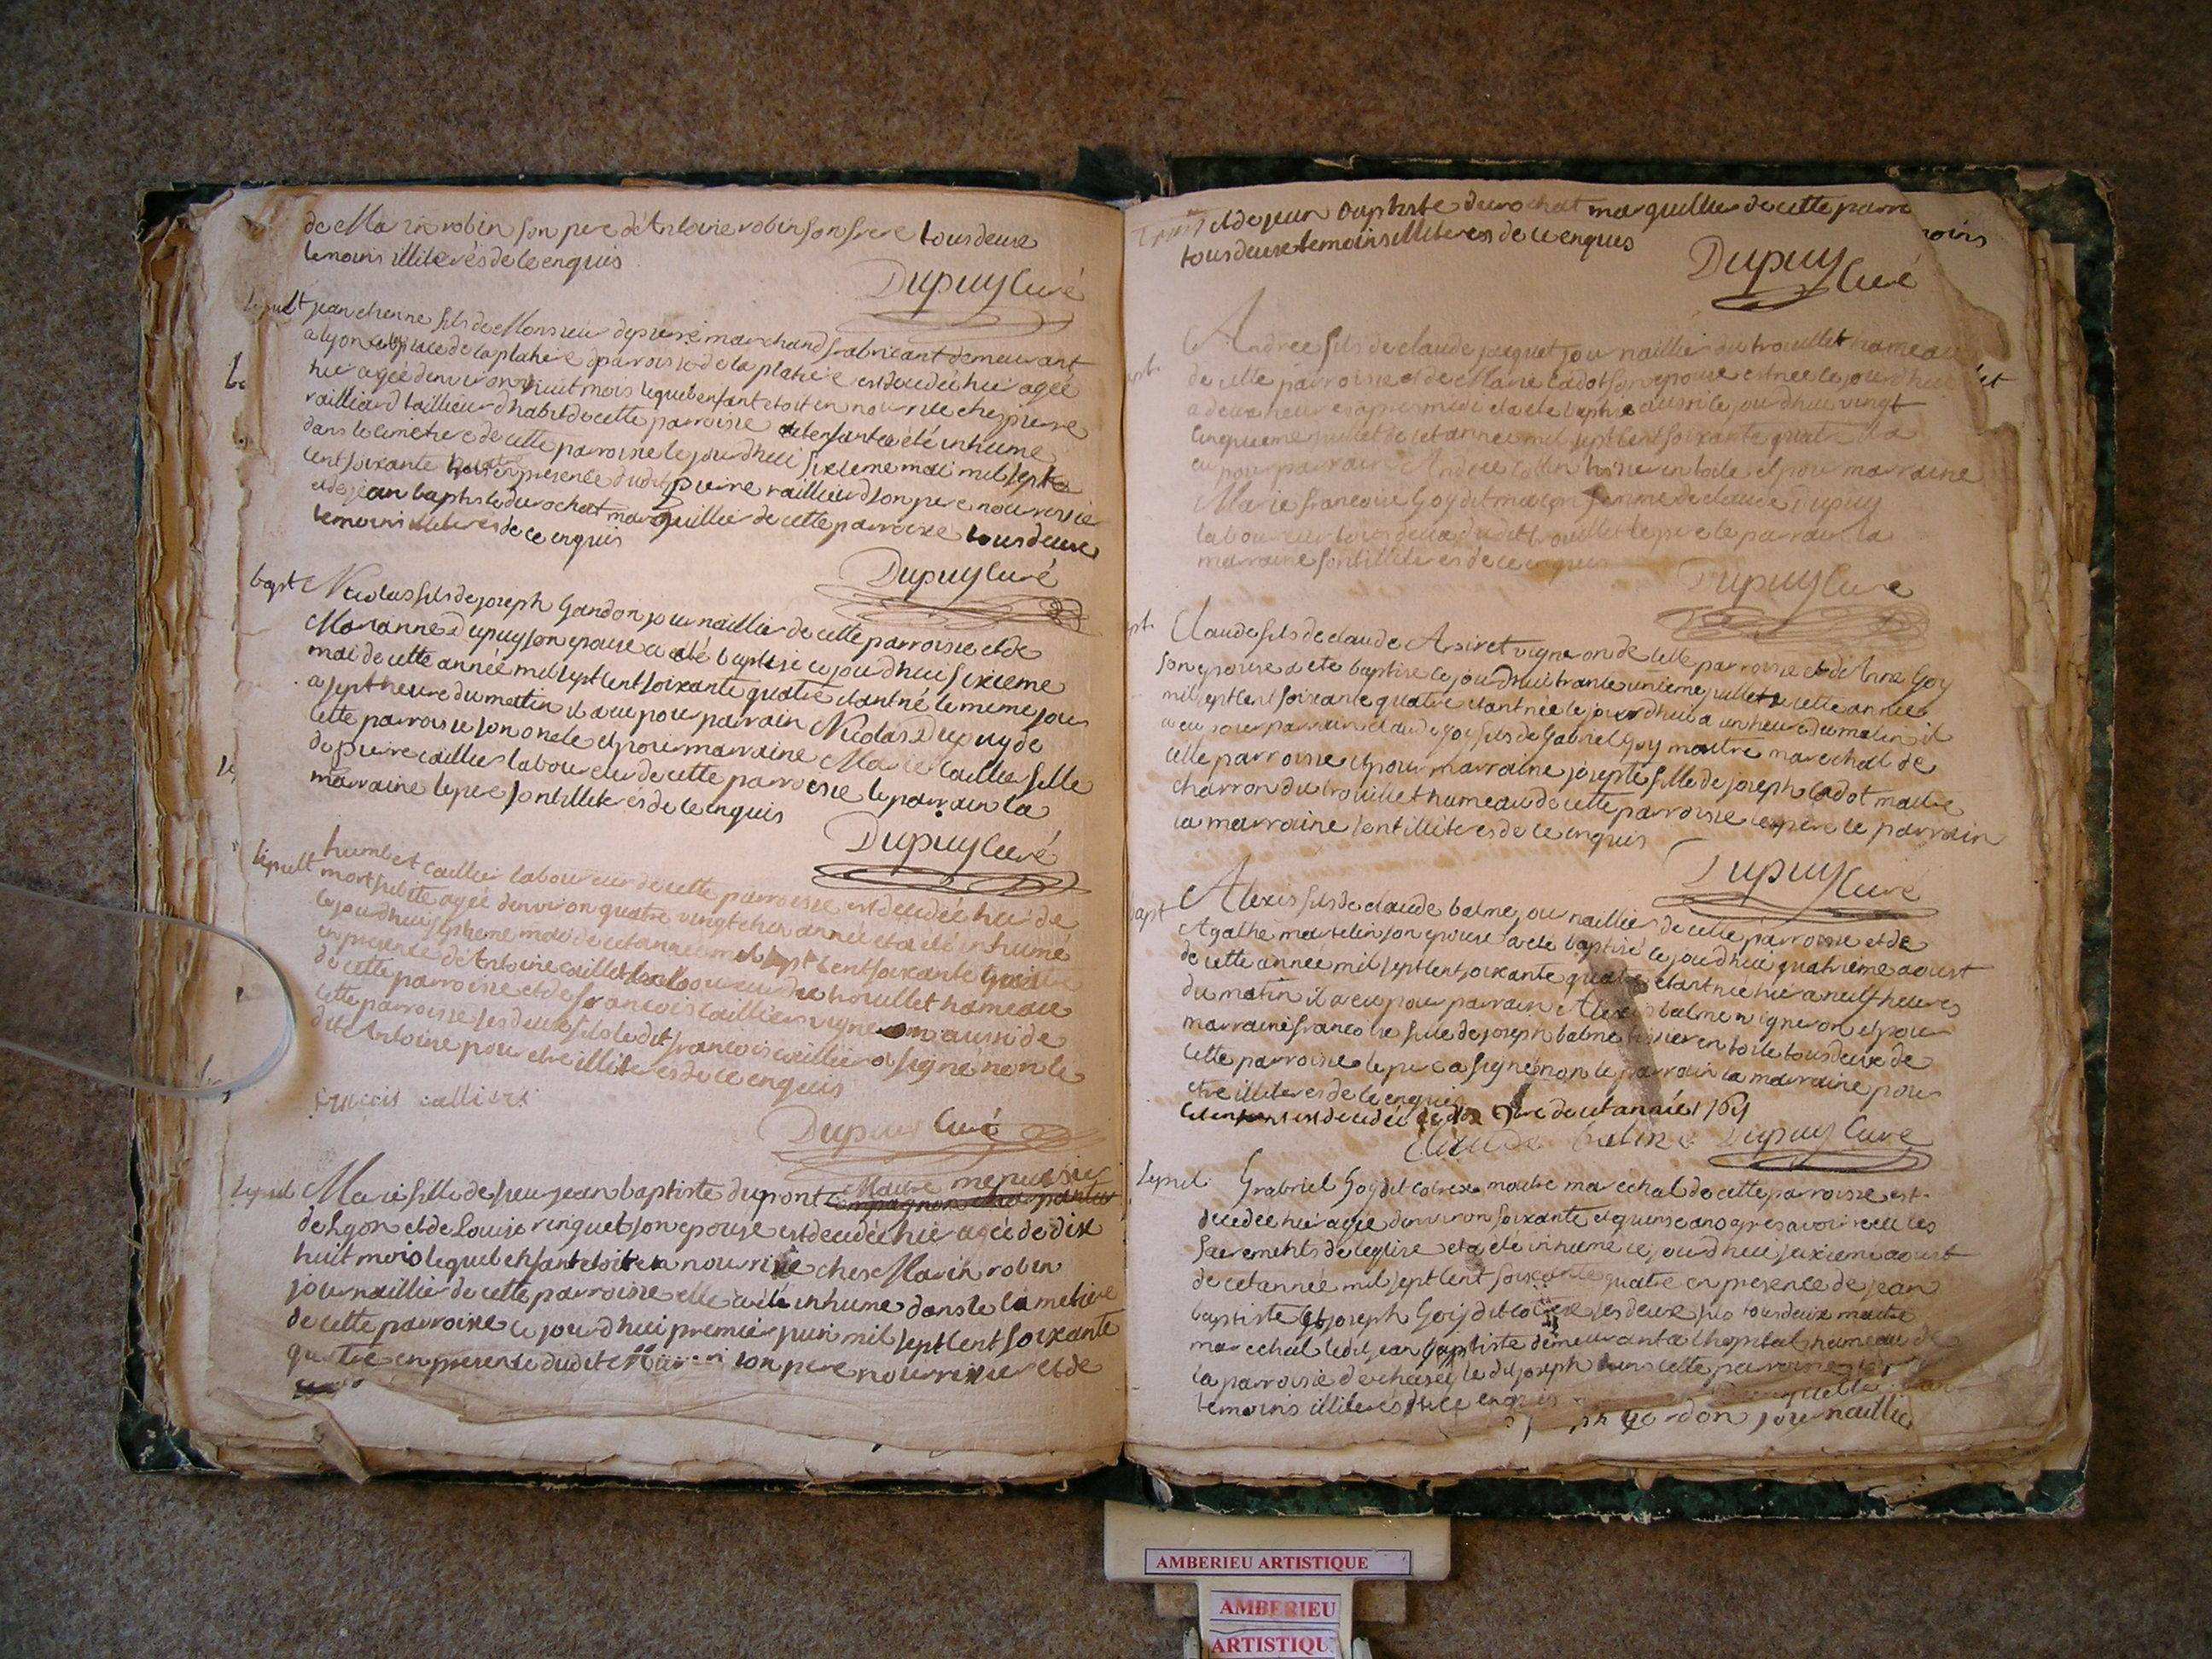 de Marin robin son pere d'Antoine robin son frere tous deux
temoins illiterés de ce enquis
Dupuy Curé
sepult jean etienne fils de Monsieur depierre marchand fabricant demeurant
a lyon place de la platiere parroisse de la platiere est decedée hier agée
hier agée denviron huit mois lequel enfant etoit en nourrice ches pierre
railliard taillieur dhabit de cette parroisse et enfant a été inhumé
dans le cimetiere de cette parroisse le jourdhui sixieme mai mil sept
cent soixante en presence dudit pierre raillieard son pere nourricié
et de jean baptiste durochat marguillier de cette parroisse tous deux
temoins illiteres de ce enquis
Dupuy Curé
bapt Nicolas fils de joseph Gandon journaillier de cette parroisse et de
Marianne Dupuy son epouse a eté baptisé ce jourdhui sixieme
mai de cette année mil sept cent soixante quatre etant né le meme jour
a sept heure du matin il a eu pour parrain Nicolas Dupuy de
cette parroisse son oncle et pour marraine Marie caillier fille
de pierre caillier laboureur de cette parroisse le parrain la
marraine le pere sont illiterés de ce enquis
Dupuy curé
sepult humbert caillier laboureur de cette parroisse est decedée hier de
mort subite agée denviron quatre vingt année et a eté inhumé
le jourdhui septieme mai de cet année mil sept cent soixante quatre
en presence de Antoine caillier laboureur du trouillet hameau
de cette parroisse et de francois caillier vigneron aussi de
cette parroisse ses deux fils ledit francois caillier a signé non le
dit Antoine pour etre illiteres de ce enquis
francois callier
Dupuy Curé
sepul Marie fille de sieur jean baptiste dupont Maitre menuisier
compagnon charpentier
de Lyon et de Louise ringuet son epouse est decedée hier agée de dix
huit mois lequel enfant etoit en nourrice ches Marin robin
journaillier de cette parroisse elle a eté inhume dans le cimetiere
de cette parroisse ce jourdhui premier juin mil sept cent soixante
quatre en presence dudit Marin son pere nourricier et de
et de jean baptiste durochat marguillier de cette parro
tous deux temoins illiteres de ce enquis
moins
Dupuy Curé
Andrée fils de claude jacquet journaillier du trouillet hameau
de cette parroisse et de Marie cadot son epouse est née le jourdhui
a deux heures apres midi et a eté baptisé aussi le jourdhui vingt
cinquieme juillet de cet année mil sept cent soixante quatre il a
eu pour parrain Andree en toile et pour marraine
Marie francoise Goy dit macon femme de claude Dupuy
laboureur tous deux dudit trouillet le pere le parrain la
marraine sont illiteres de ce enquis
Dupuy Curé
Claude fils de claude Arsivet vigneron de cette parroisse et de Anne Goy
son epouse a eté baptisé le jourdhui trante unieme juillet de cette année
mil sept cent soixante quatre etant née le jourdhui a un heure du matin il
a eu pour parrain claude Goy fils de Gabriel Goy maitre marechal de
cette parroisse et pour marraine josepte fille de joseph Cadot maitre
charron du trouillet hameau de cette parroisse le pere le parrain
la marraine sont illiteres de ce enquis
Dupuy Curé
bapt Alexis fils de claude balme journaillier de cette parroisse et de
Agathe martelin son epouse a eté baptisé ce jourdhui quatrieme aoust
de cette année mil sept cent soixante quatre etant né hier a neuf heures
du matin il a eu pour parrain Alexis balme vigneron et pour
marraine francoise fille de joseph balme tissier en toile tous deux de
cette parroisse le pere a signé non le parrain la marraine pour
etre illiteres de ce enquis
cet enfant est decedée de cet année 1764
Claude balme Dupuy Curé
sepul. Grabriel Goy dit maitre marechal de cette parroisse est
decedée hier agée denviron soixante et quinse ans apres avoir receu les
sacrements de leglise et a eté inhumé ce jourdhui sixieme aoust
de cet année mil sept cent soixante quatre en presence de jean
baptiste et joseph Goy dit ses deux fils tous deux maitre
marechal ledit jean baptiste demeurant a lhopital hameau de
la parroisse de chasey le dit joseph dans cette parroisse
temoins illiterés de ce enquis
Gardon journaillie
AMBERIEU ARTISTIQUE
AMBERIEU
ARTISTIQU